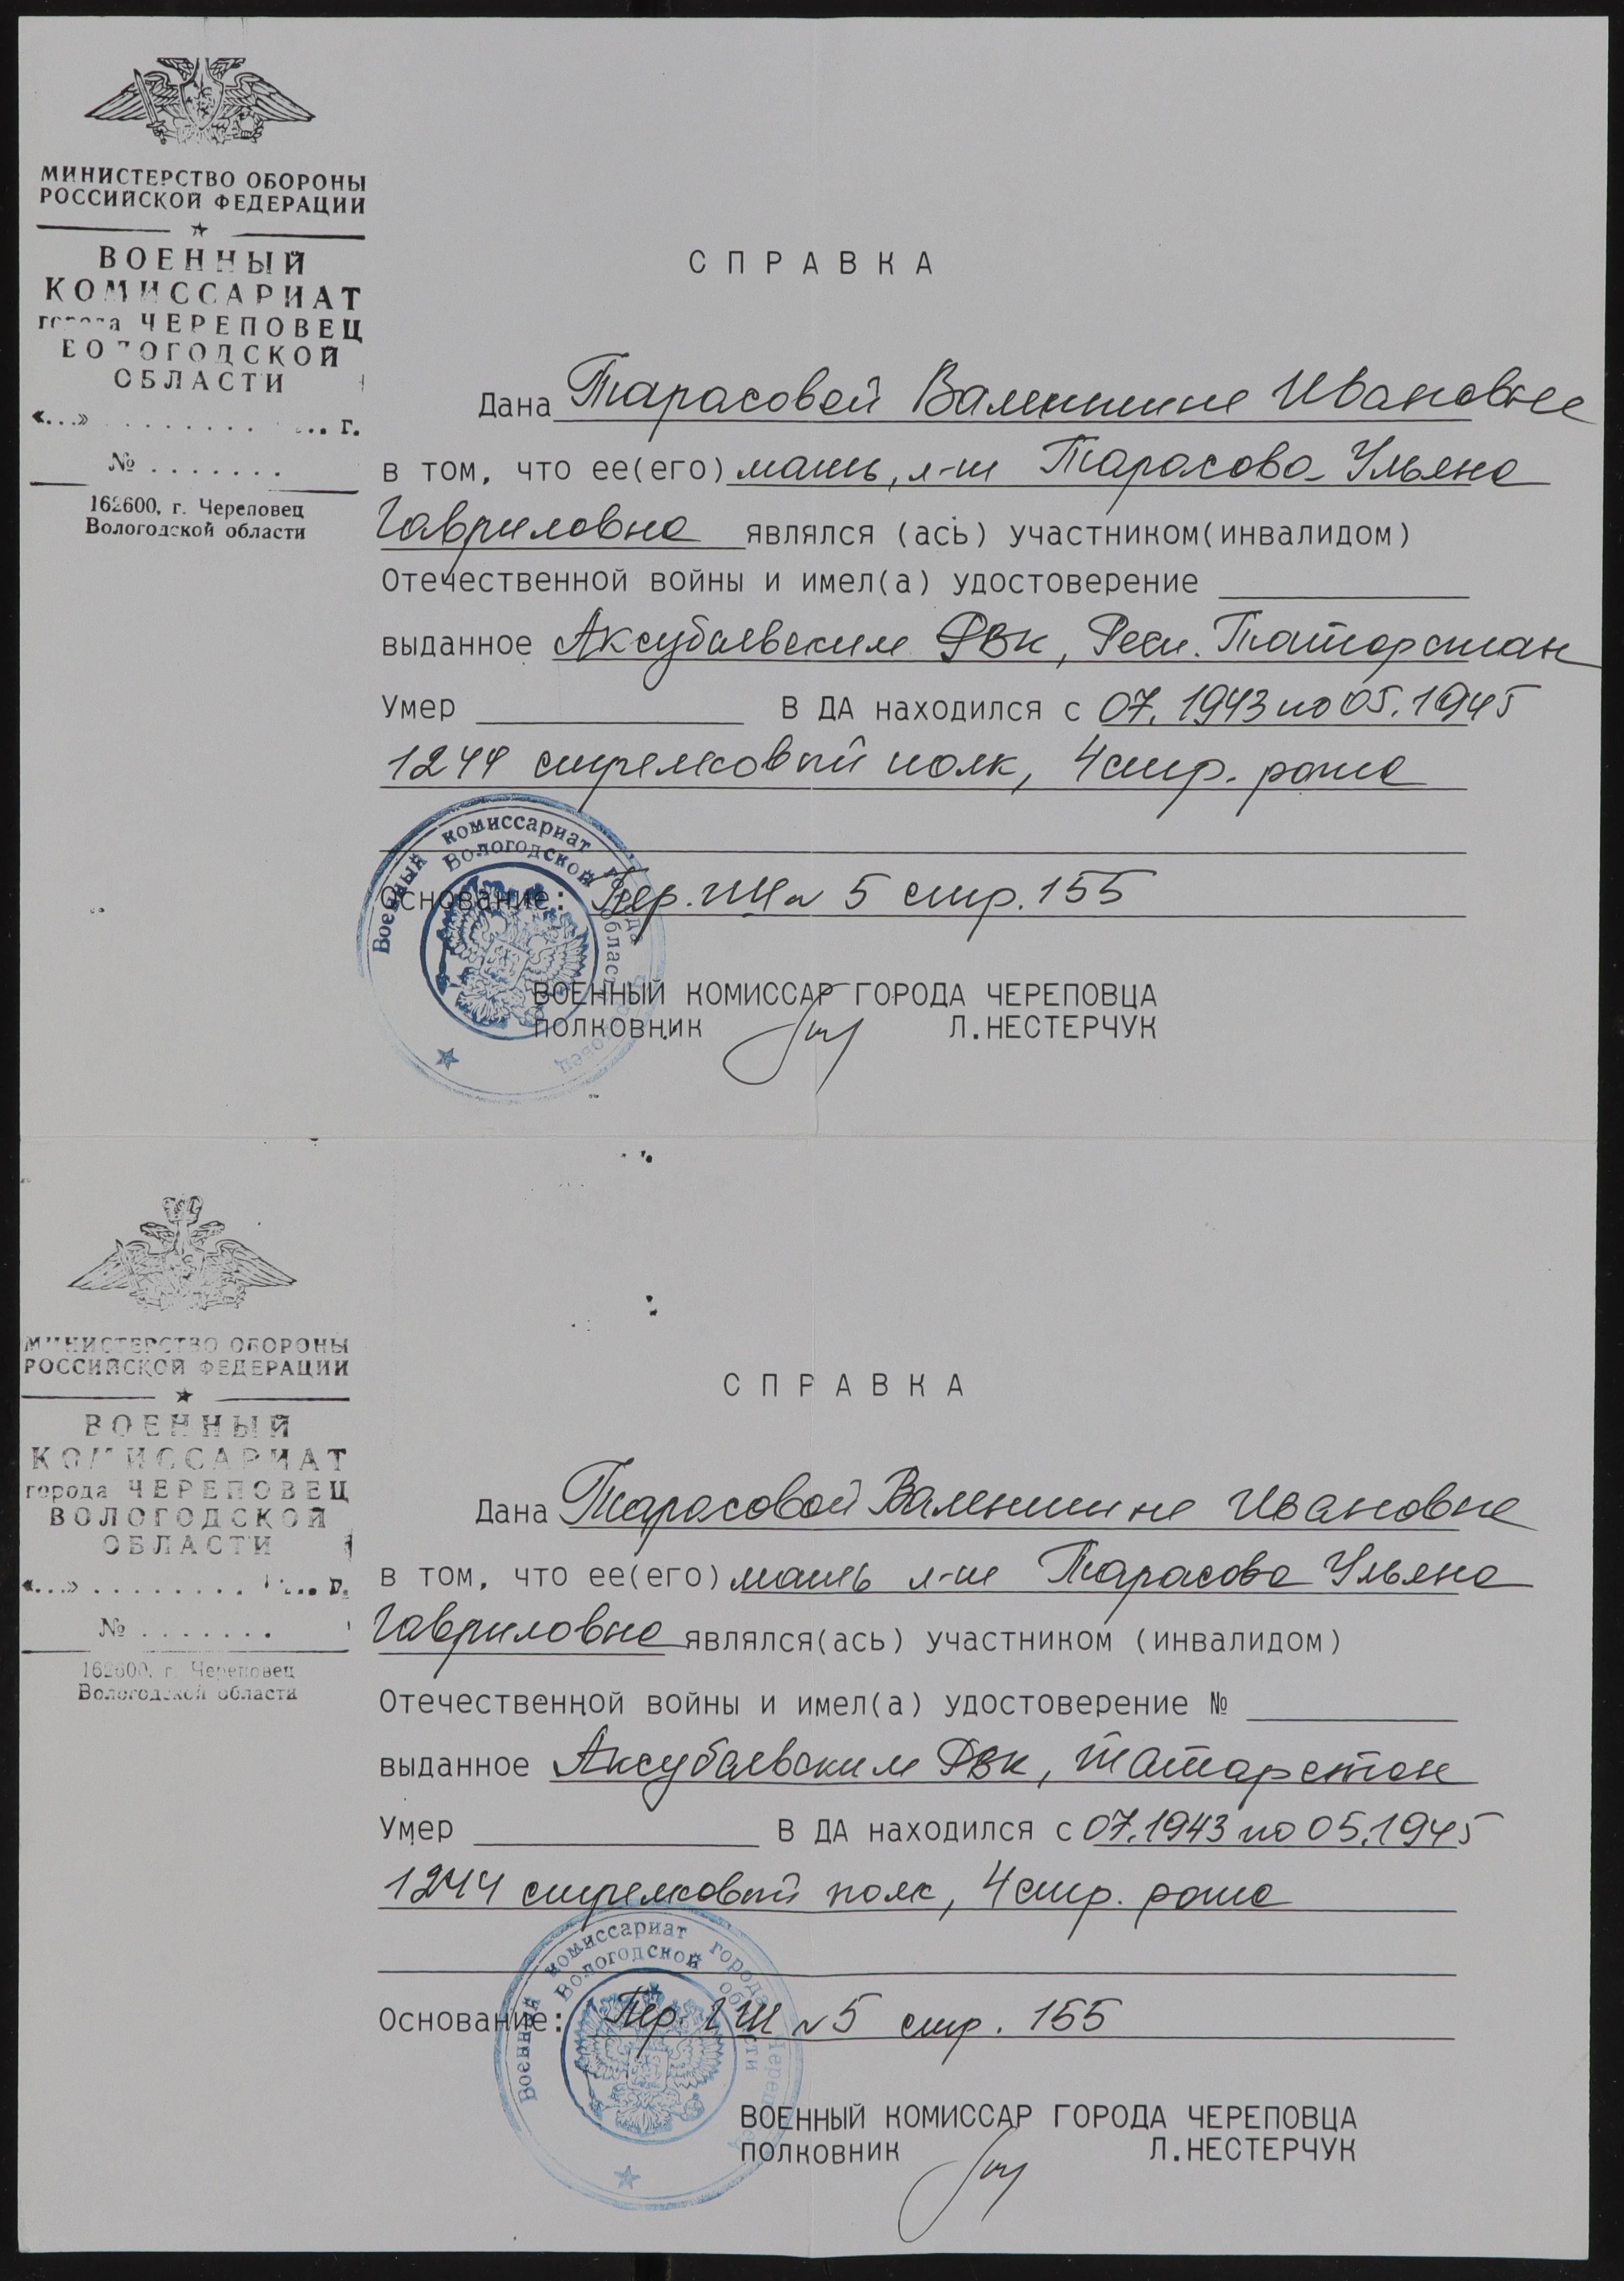 МИНИСТЕРСТВО ОБОРОНЫ
РОССИЙСКОЙ ФЕДЕРАЦИИ
ВОЕННЫЙ
КОМИССАРИАТ
города ЧЕРЕПОВЕЦ
ВОЛОГОДСКОЙ
ОБЛАСТИ
«...» . . . . . . . . . . ... г.
№ . . . . . . .
162600, г. Череповец
Вологодской области
СПРАВКА
Дана Тарасовой Валентине Ивановне
в том, что ее(его) мать, л-т Тарасова Ульяна
Гавриловна являлся (ась) участником(инвалидом)
Отечественной войны и имел(а) удостоверение
выданное Аксубаевским РВК, Респ. Татарстан
Умер В ДА находился с 07.1943 по 05.1945
1244 стрелковый полк, 4 стр. рота
Основание: стр. 155
Военный комиссариат города Череповец
Вологодской области
ВОЕННЫЙ КОМИССАР ГОРОДА ЧЕРЕПОВЦА
ПОЛКОВНИК Л.НЕСТЕРЧУК
МИНИСТЕРСТВО ОБОРОНЫ
РОССИЙСКОЙ ФЕДЕРАЦИИ
ВОЕННЫЙ
КОМИССАРИАТ
города ЧЕРЕПОВЕЦ
ВОЛОГОДСКОЙ
ОБЛАСТИ
«...» . . . . . . . . . ... г.
№ . . . . . . .
162600, г. Череповец
Вологодской области
СПРАВКА
Дана Тарасовой Валентине Ивановне
в том, что ее(его) мать л-т Тарасова Ульяна
Гавриловна являлся(ась) участником (инвалидом)
Отечественной войны и имел(а) удостоверение №
выданное Аксубаевским РВК, Татарстан
Умер В ДА находился с 07.1943 по 05.1945
1244 стрелковый полк, 4 стр. рота
Основание: №5 стр. 155
Военный комиссариат города Череповец
Вологодской области
ВОЕННЫЙ КОМИССАР ГОРОДА ЧЕРЕПОВЦА
ПОЛКОВНИК Л.НЕСТЕРЧУК